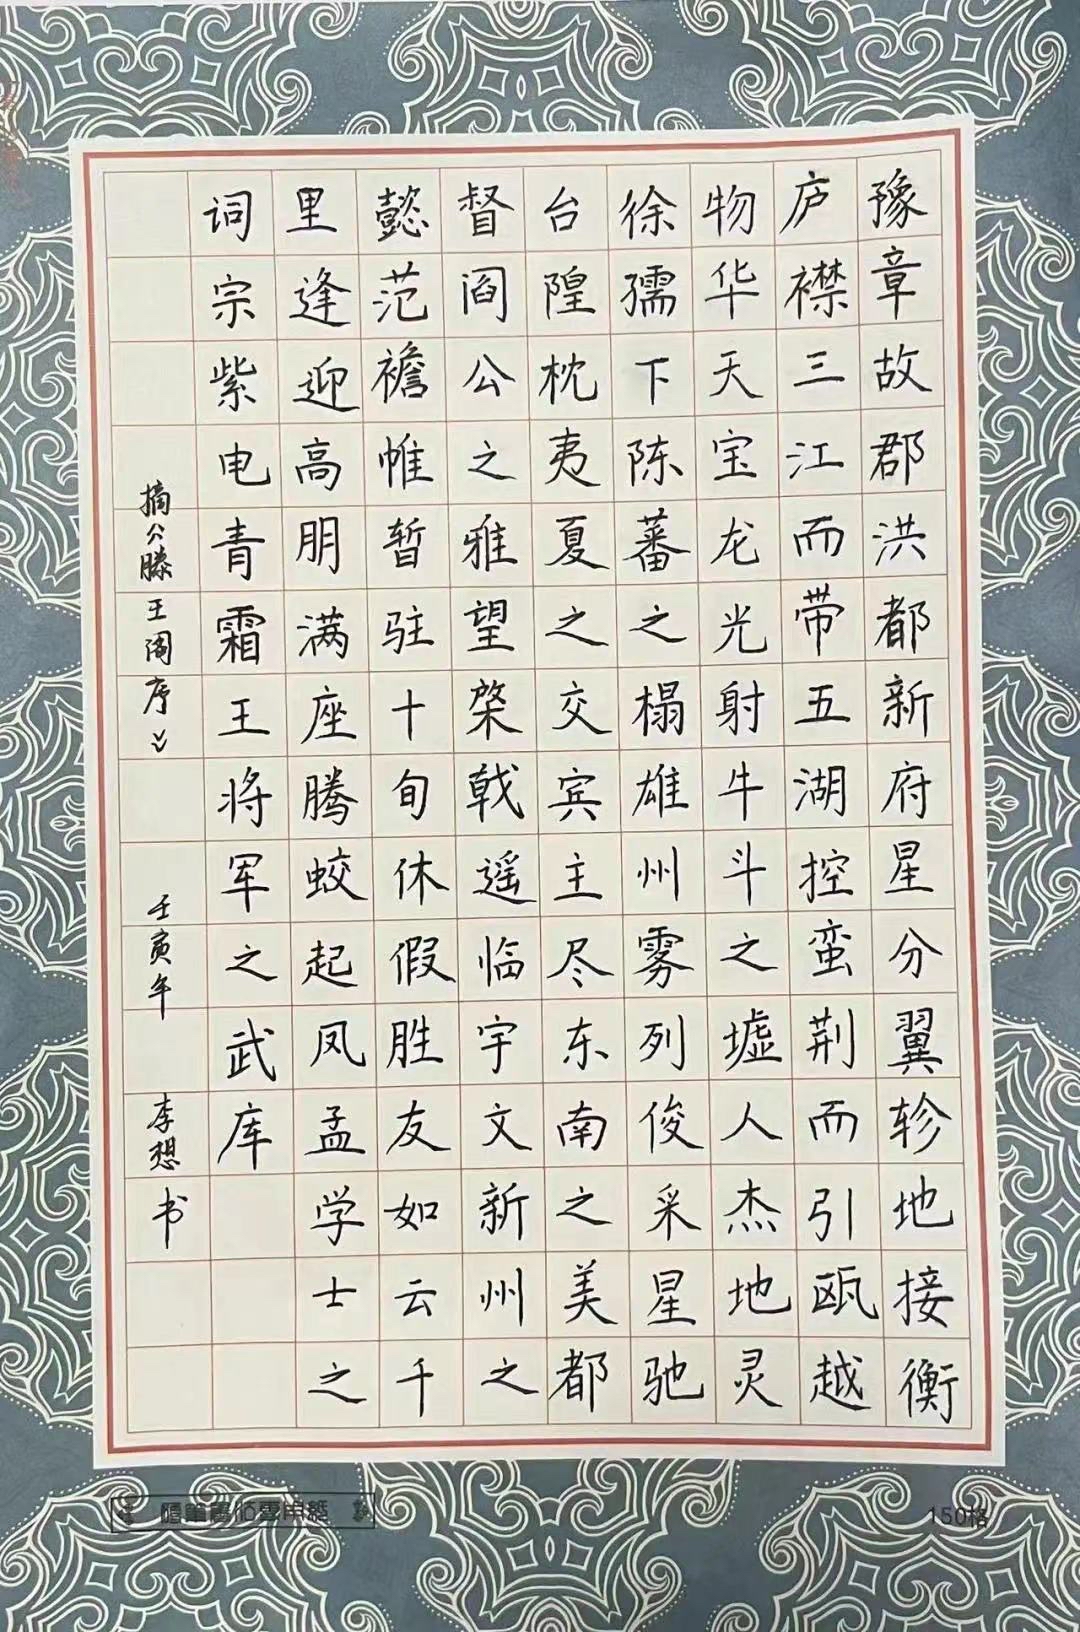 豫章故郡洪都新府星分翼轸地接衡
庐襟三江而带五湖控蛮荆而引瓯越
物华天宝龙光射牛斗之墟人杰地灵
徐孺下陈蕃之榻雄州雾列俊采星驰
台隍枕夷夏之交宾主尽东南之美都
督阎公之雅望棨戟遥临宇文新州之
懿范襜帷暂驻十旬休假胜友如云千
里逢迎高朋满座腾蛟起凤孟学士之
词宗紫电青霜王将军之武库
摘公滕王阁序 壬寅年 李想书
随笔书坊专用纸
150格